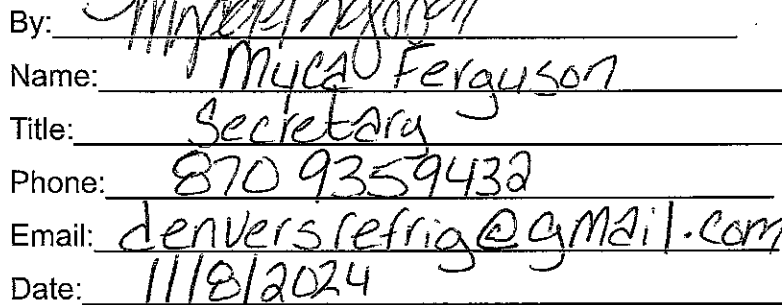 By:
Name: Myca Ferguson
Title: Secretary
Phone: 870 9359432
Email: denversrefrig@gmail.com
Date: 11/8/2024